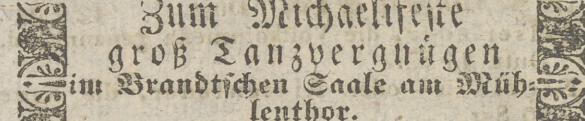 Zum Michaelifeste
groß Tanzvergnügen
im Brandtschen Saale am Müh-
lenthor.